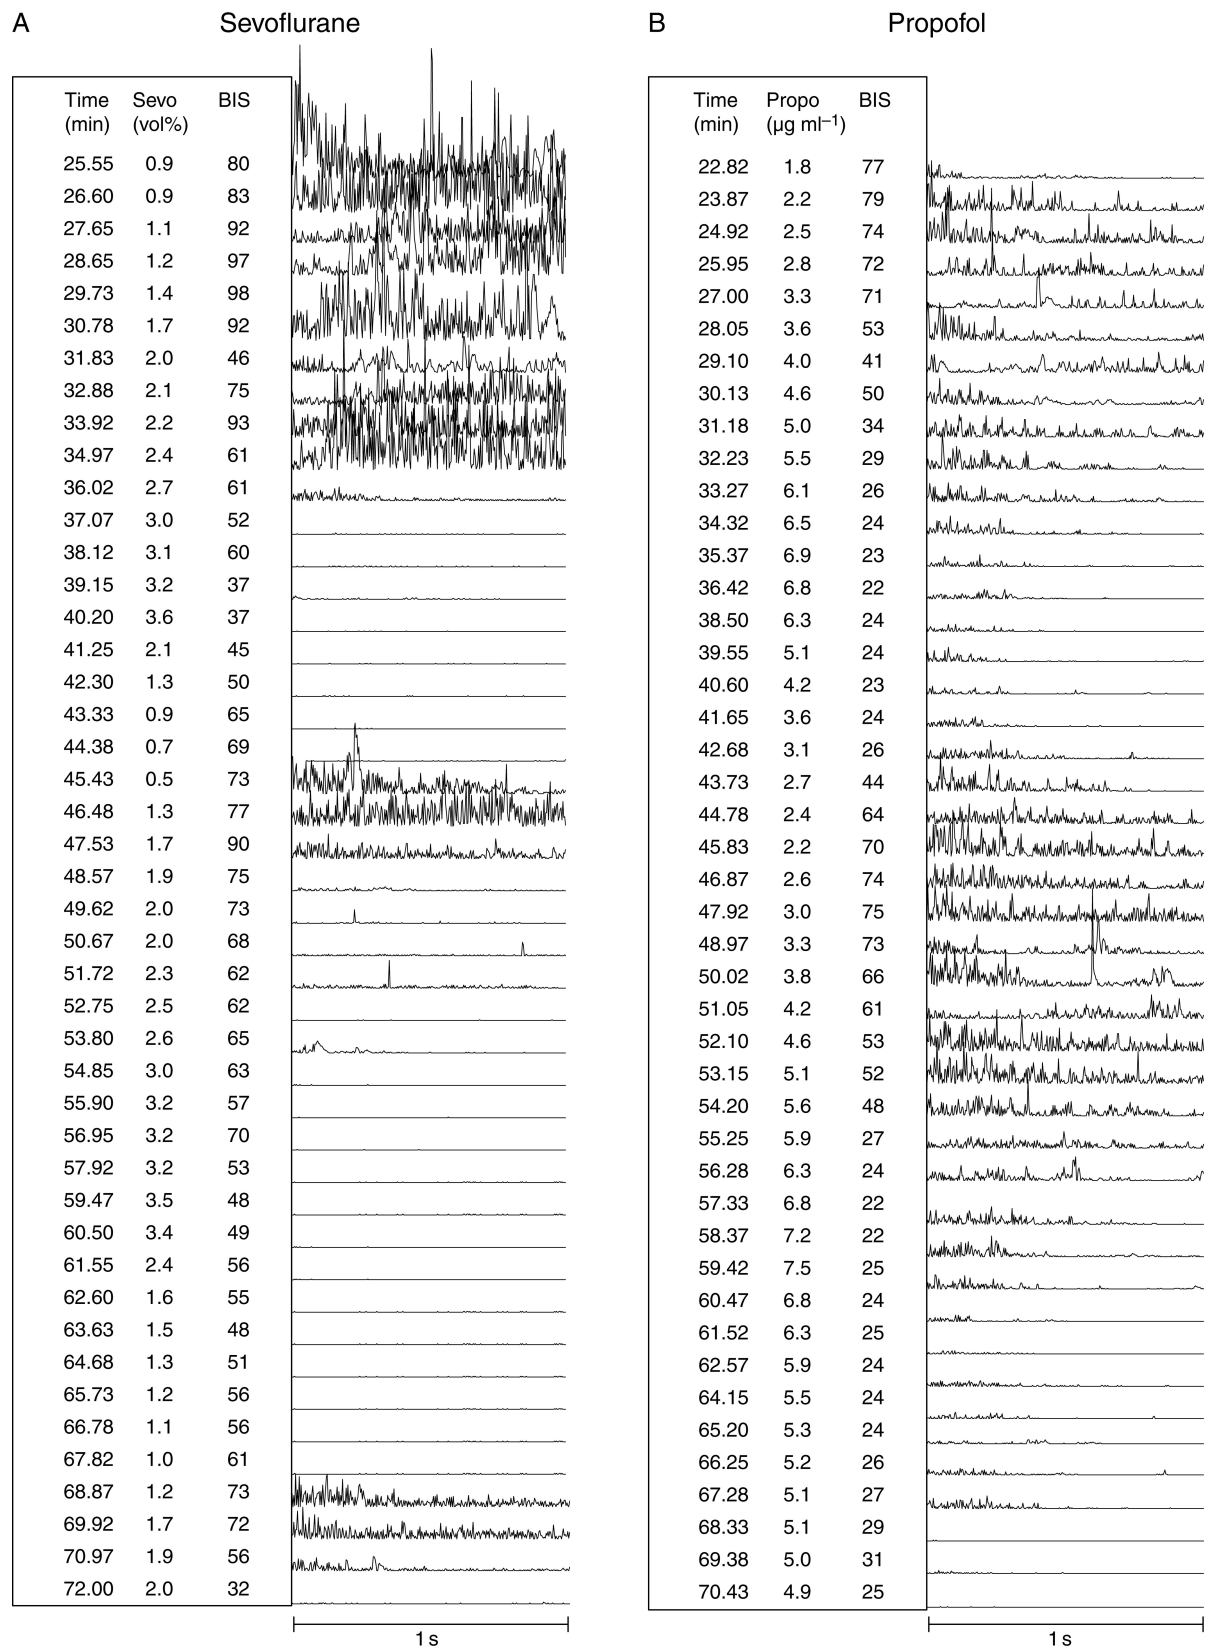 A Sevoflurane
Time Sevo BIS
(min) (vol%)
25.55 0.9 80
26.60 0.9 83
27.65 1.1 92
28.65 1.2 97
29.73 1.4 98
30.78 1.7 92
31.83 2.0 46
32.88 2.1 75
33.92 2.2 93
34.97 2.4 61
36.02 2.7 61
37.07 3.0 52
38.12 3.1 60
39.15 3.2 37
40.20 3.6 37
41.25 2.1 45
42.30 1.3 50
43.33 0.9 65
44.38 0.7 69
45.43 0.5 73
46.48 1.3 77
47.53 1.7 90
48.57 1.9 75
49.62 2.0 73
50.67 2.0 68
51.72 2.3 62
52.75 2.5 62
53.80 2.6 65
54.85 3.0 63
55.90 3.2 57
56.95 3.2 70
57.92 3.2 53
59.47 3.5 48
60.50 3.4 49
61.55 2.4 56
62.60 1.6 55
63.63 1.5 48
64.68 1.3 51
65.73 1.2 56
66.78 1.1 56
67.82 1.0 61
68.87 1.2 73
69.92 1.7 72
70.97 1.9 56
72.00 2.0 32
1 s
B Propofol
Time Propo BIS
(min) (µg ml–1)
22.82 1.8 77
23.87 2.2 79
24.92 2.5 74
25.95 2.8 72
27.00 3.3 71
28.05 3.6 53
29.10 4.0 41
30.13 4.6 50
31.18 5.0 34
32.23 5.5 29
33.27 6.1 26
34.32 6.5 24
35.37 6.9 23
36.42 6.8 22
38.50 6.3 24
39.55 5.1 24
40.60 4.2 23
41.65 3.6 24
42.68 3.1 26
43.73 2.7 44
44.78 2.4 64
45.83 2.2 70
46.87 2.6 74
47.92 3.0 75
48.97 3.3 73
50.02 3.8 66
51.05 4.2 61
52.10 4.6 53
53.15 5.1 52
54.20 5.6 48
55.25 5.9 27
56.28 6.3 24
57.33 6.8 22
58.37 7.2 22
59.42 7.5 25
60.47 6.8 24
61.52 6.3 25
62.57 5.9 24
64.15 5.5 24
65.20 5.3 24
66.25 5.2 26
67.28 5.1 27
68.33 5.1 29
69.38 5.0 31
70.43 4.9 25
1 s